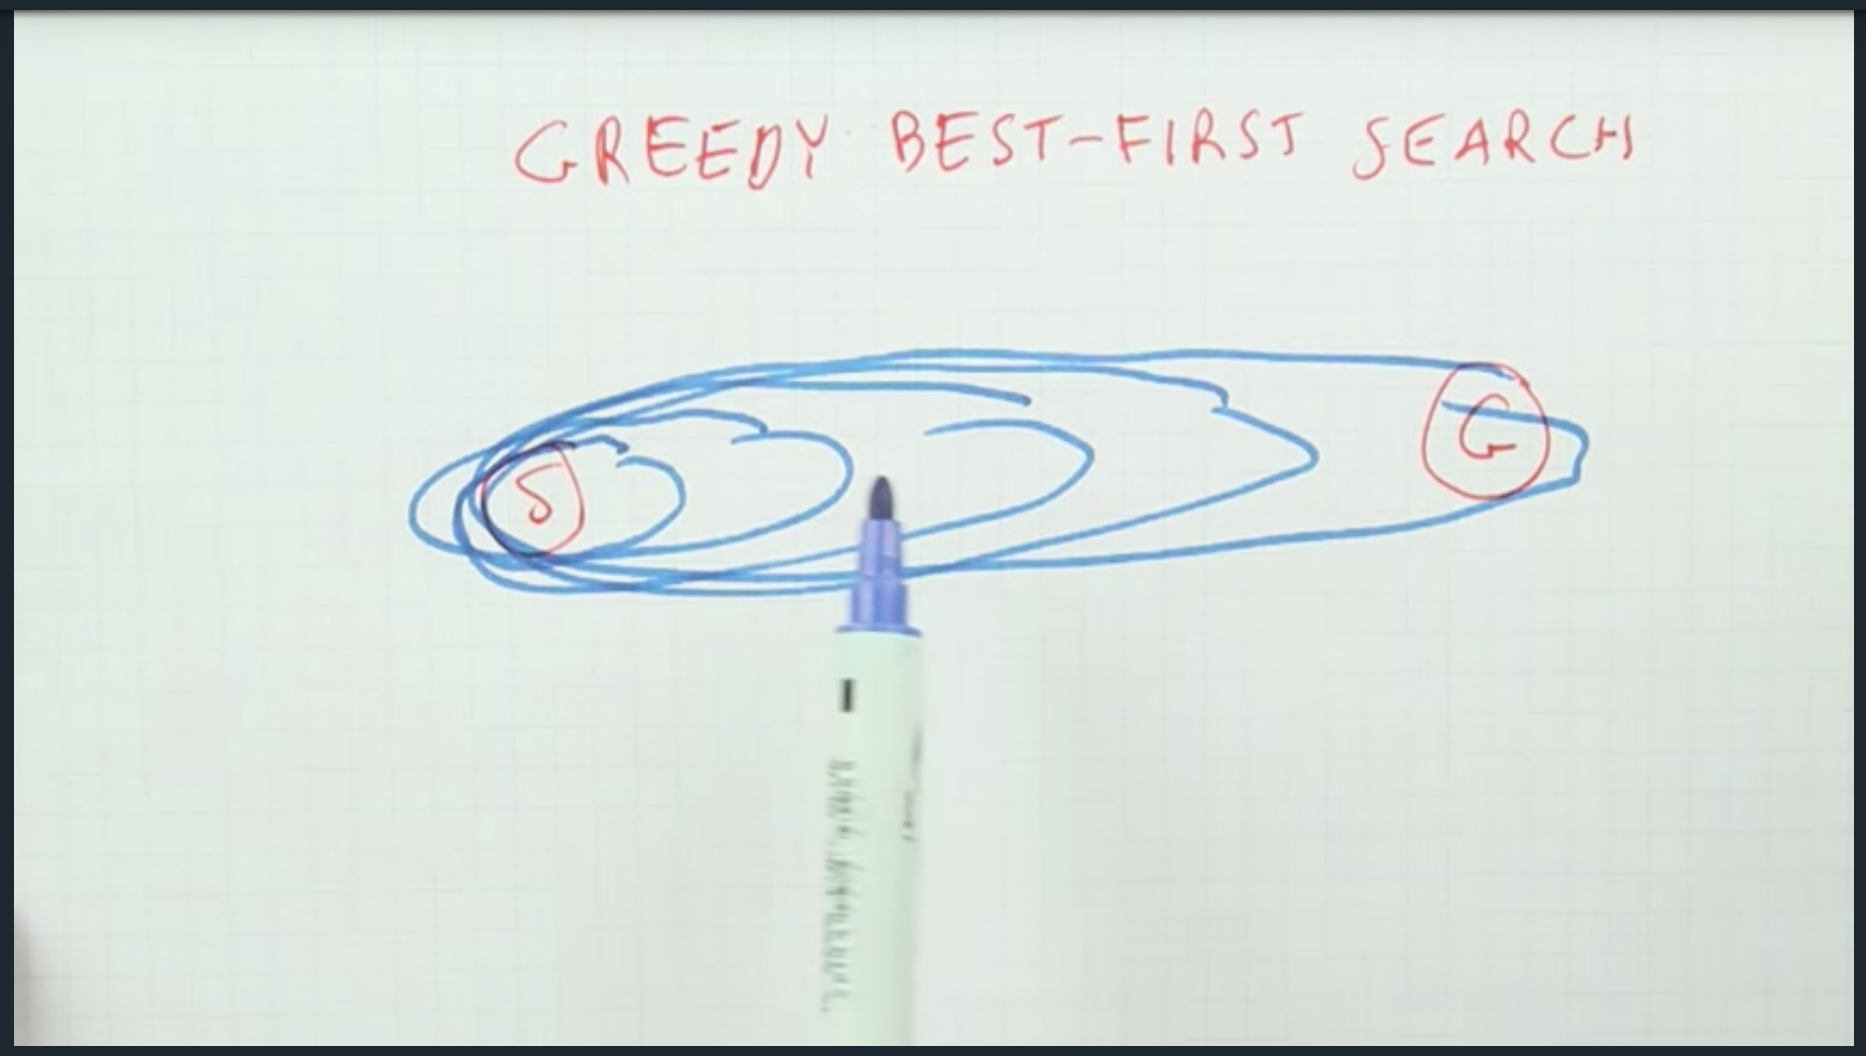 GREEDY BEST-FIRST SEARCH
S
G